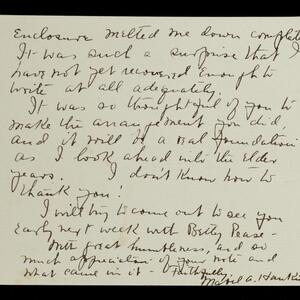 Enclosure melted me down complete
It was such a surprise that I
have not yet recovered enough to
write at all adequately.
It was so thoughtful of you to
make the arrangement you did,
and it will be a real foundation
as I look ahead into the elder
years. I don't know how to
thank you!
I will try to come out to see you
early next week with Betty Pease -
With great humbleness, and so
much appreciation of your note and
what came in it - Faithfully
Mabel A.